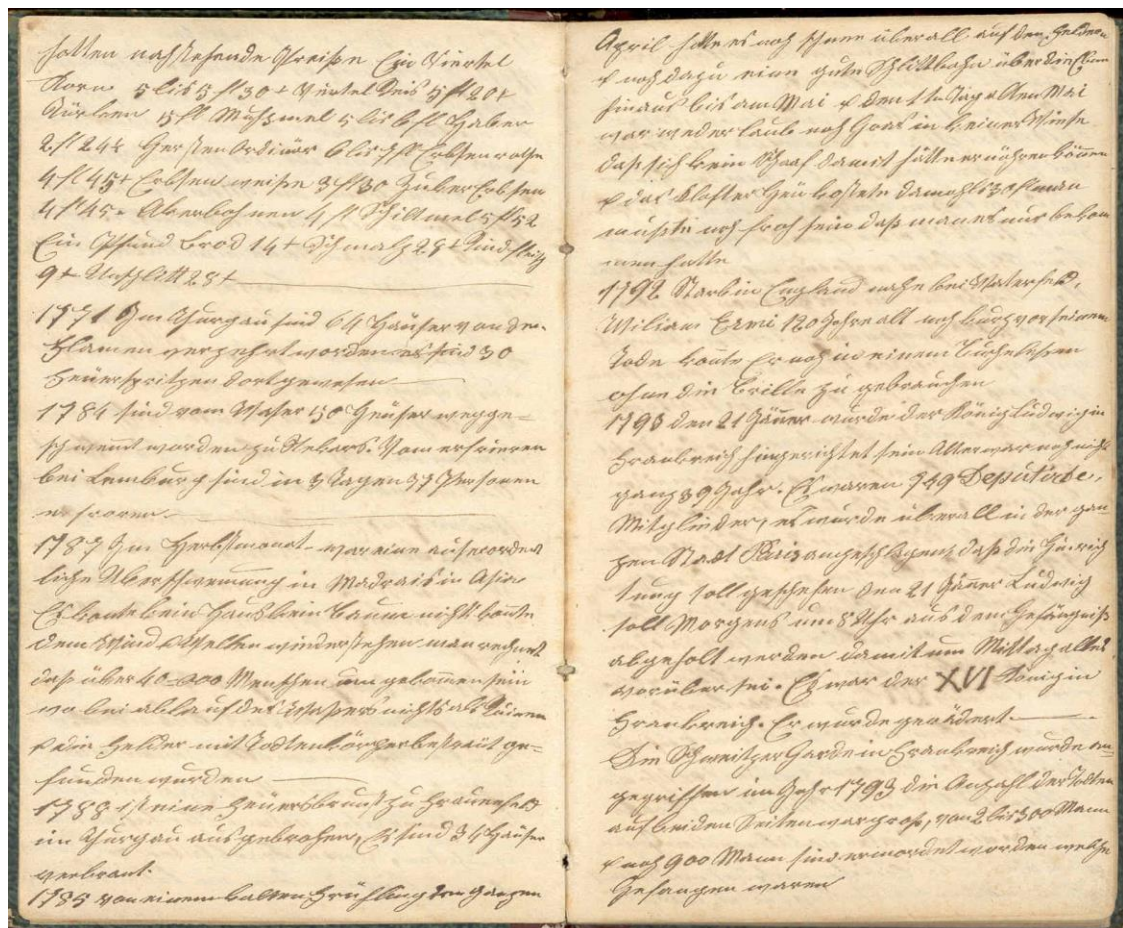 hatten nachstehende Preiße Ein Viertel
Korn 5 bis 5 fl 30 x Viertel Reis 5 fl 20 x
5 fl Mußmel 5 bis 6 fl Haber
2 fl 24 x Gersten Ordinär 6 bis 7 fl Erbsen rothe
4 fl 45 x Erbsen weiße 3 fl 30 Erbsen
4 fl 45 x Akerbohnen 4 fl 5 fl 52
Ein Pfund Brod 14 x Schmalz 28 x Rindfleisch
9 x Unschlitt 28 x
1771 Im Thurgau sind 64 Häuser von den
Flamen verzehrt worden es sind 30
Feüerspritzen dort gewesen
1784 sind vom Waser 50 Heüser wegge=
schwemt worden zu Nekars. Vom erfrieren
bei Lemburg sind in 3 Tagen 37 Personen
erfroren
1787 Im Herbstmonat war eine auserordent
liche Überschwemung in Madrais in Asia
Es konte kein Haus kein Baum nichts konte
dem Wind & Wellen wiederstehen man rechnet
daß über 40=000 Menschen um gekommen sein
wo bei ablauf des Waßers nichts als Ruinen
& die Felder mit Todtenkörper bestreüt ge=
funden wurden
1788 ist eine Feüersbrunst zu Frauenfeld
im Thurgau ausgebrochen, Es sind 34 Häuser
verbrant.
1785 von einem kalten Frühling Im ganzen
April hatte es noch Schnee überall auf den Feldern
& noch dazu eine gute Schlittbahn über
hinaus bis am Mai & den 11ten Tag alten Mai
war weder Laub noch Gras in keiner Wiese
daß sich kein Schaaf damit hätte ernähren können
& das Klafter Heü kostete damahls 30 fl man
mußte noch froh sein daß man es nur bekom
men hatte
1792 Starb in England nahe bei Waterfeld,
Wiliam Ermi 120 Jahre alt noch kurz vor seinem
Tode konte Er noch in einem Buche lesen
ohne die Brille zu gebrauchen
1793 den 21 Jäner wurde der König Ludwig in
Frankreich hingerichtet sein Alter war noch nicht
ganz 39 Jahr. Es waren 749 Deputirte,
Mitglieder, es wurde überall in der gan
zen Stadt Paris angeschlagen, daß die Hinrich
tung soll geschehen den 21 Jäner Ludwig
soll Morgens um 8 Uhr aus dem Gefängniß
abgeholt werden damit um Mittag alles
vorüber sei. Es war der XVI König in
Frankreich. Er wurde
Die Schweitzer Garde in Frankreich wurde an=
gegriffen im Jahr 1793 die Anzahl der Todten
auf beiden Seiten war groß, von 2 bis 300 Mann
& noch 900 Mann sind ermordet worden welche
Gefangen waren